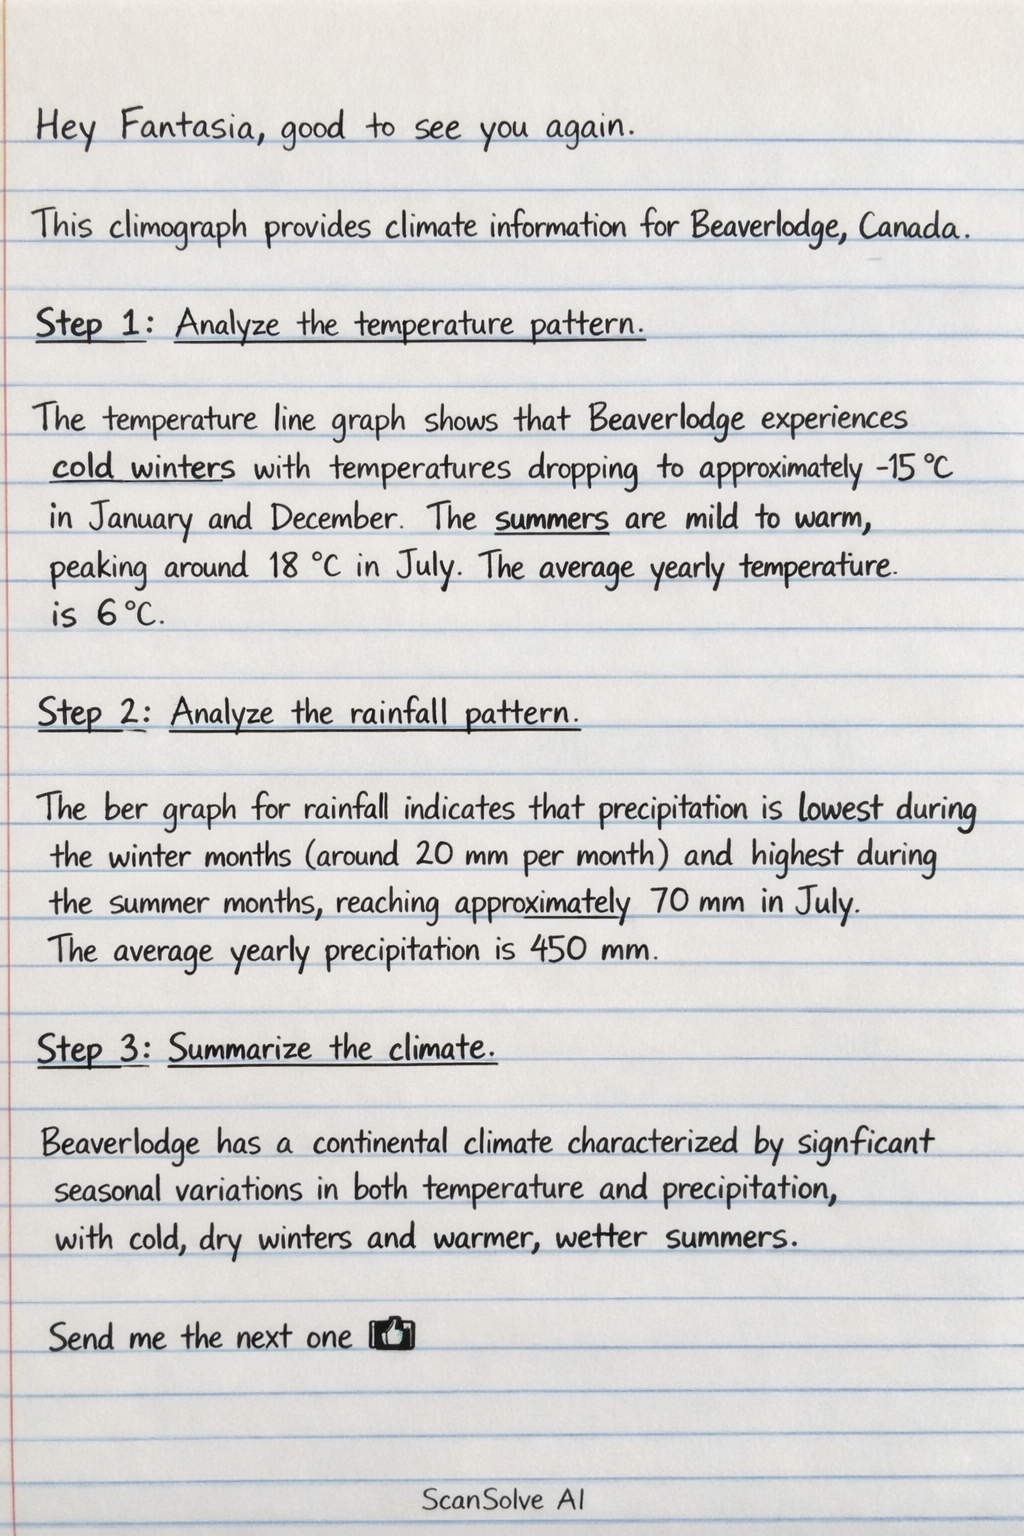 Hey Fantasia, good to see you again.
This climograph provides climate information for Beaverlodge, Canada.
Step 1: Analyze the temperature pattern.
The temperature line graph shows that Beaverlodge experiences
cold winters with temperatures dropping to approximately -15 °C
in January and December. The summers are mild to warm,
peaking around 18 °C in July. The average yearly temperature.
is 6 °C.
Step 2: Analyze the rainfall pattern.
The ber graph for rainfall indicates that precipitation is lowest during
the winter months (around 20 mm per month) and highest during
the summer months, reaching approximately 70 mm in July.
The average yearly precipitation is 450 mm.
Step 3: Summarize the climate.
Beaverlodge has a continental climate characterized by signficant
seasonal variations in both temperature and precipitation,
with cold, dry winters and warmer, wetter summers.
Send me the next one
ScanSolve AI